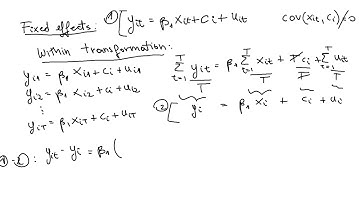 Fixed effects: ① [ y_it = β₁ x_it + c_i + u_it     cov(x_it, c_i) ≠ 0
Within transformation:
y_i1 = β₁ x_i1 + c_i + u_i1
y_i2 = β₁ x_i2 + c_i + u_i2
⋮
y_iT = β₁ x_iT + c_i + u_iT
Σ_{t=1}^{T} y_it / T = β₁ Σ_{t=1}^{T} x_it / T + T c_i / T + Σ_{t=1}^{T} u_it / T
② [ y_i = β₁ x_i + c_i + u_i
① - ② : y_it - y_i = β₁ (